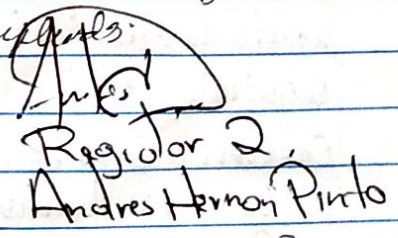 Regidor 2.
Andres Hernan Pinto